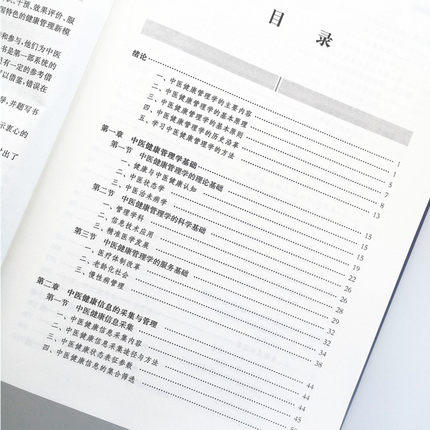 干预、效果评价、服
国特色的健康管理新模
和参与，他们为中医
书是第一部系统的
有一定的参考借
以借鉴，错误在
导，并题写书
示衷心的
出了
目 录
绪论
一、中医健康管理学的主要内容
二、中医健康管理学的基本原理
三、中医健康管理学的基本原则
四、中医健康管理学的历史沿革
五、学习中医健康管理学的方法
第一章 中医健康管理学基础
第一节 中医健康管理学的理论基础
一、健康与中医健康认知
二、中医状态学
三、中医治未病学
第二节 中医健康管理学的科学基础
一、管理学科
二、信息技术应用
三、精准医学发展
第三节 中医健康管理学的服务基础
一、医疗体制改革
二、老龄化社会
三、慢性病管理
第二章 中医健康信息的采集与管理
第一节 中医健康信息采集
一、中医健康信息采集内容
二、中医健康信息采集途径与方法
三、中医健康状态表征参数
四、中医健康信息的集合筛选